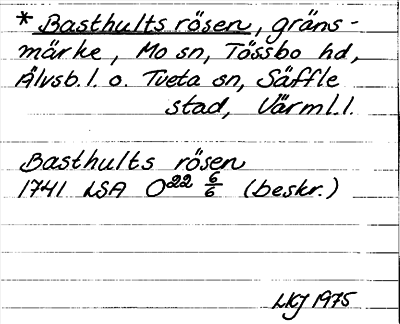 * Basthults rösen, gräns-
märke, Mo sn, Tössbo hd,
Älvsb. l. o. Tveta sn, Säffle
stad, Värml. l.
Basthults rösen
1741 LSA O22 6/6 (beskr.)
LKJ 1975